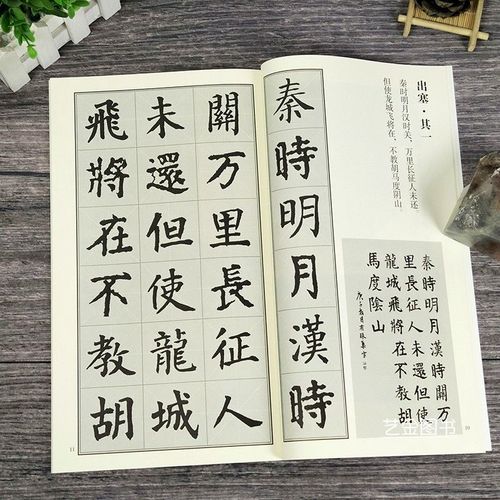 出塞·其一
秦时明月汉时关，万里长征人未还。
但使龙城飞将在，不教胡马度阴山。
秦時明月漢時關万
里長征人未還但使
龍城飛將在不教胡
馬度陰山
秦時明月漢時
關万里長征人
未還但使龍城
飛將在不教胡
11
艺金图书